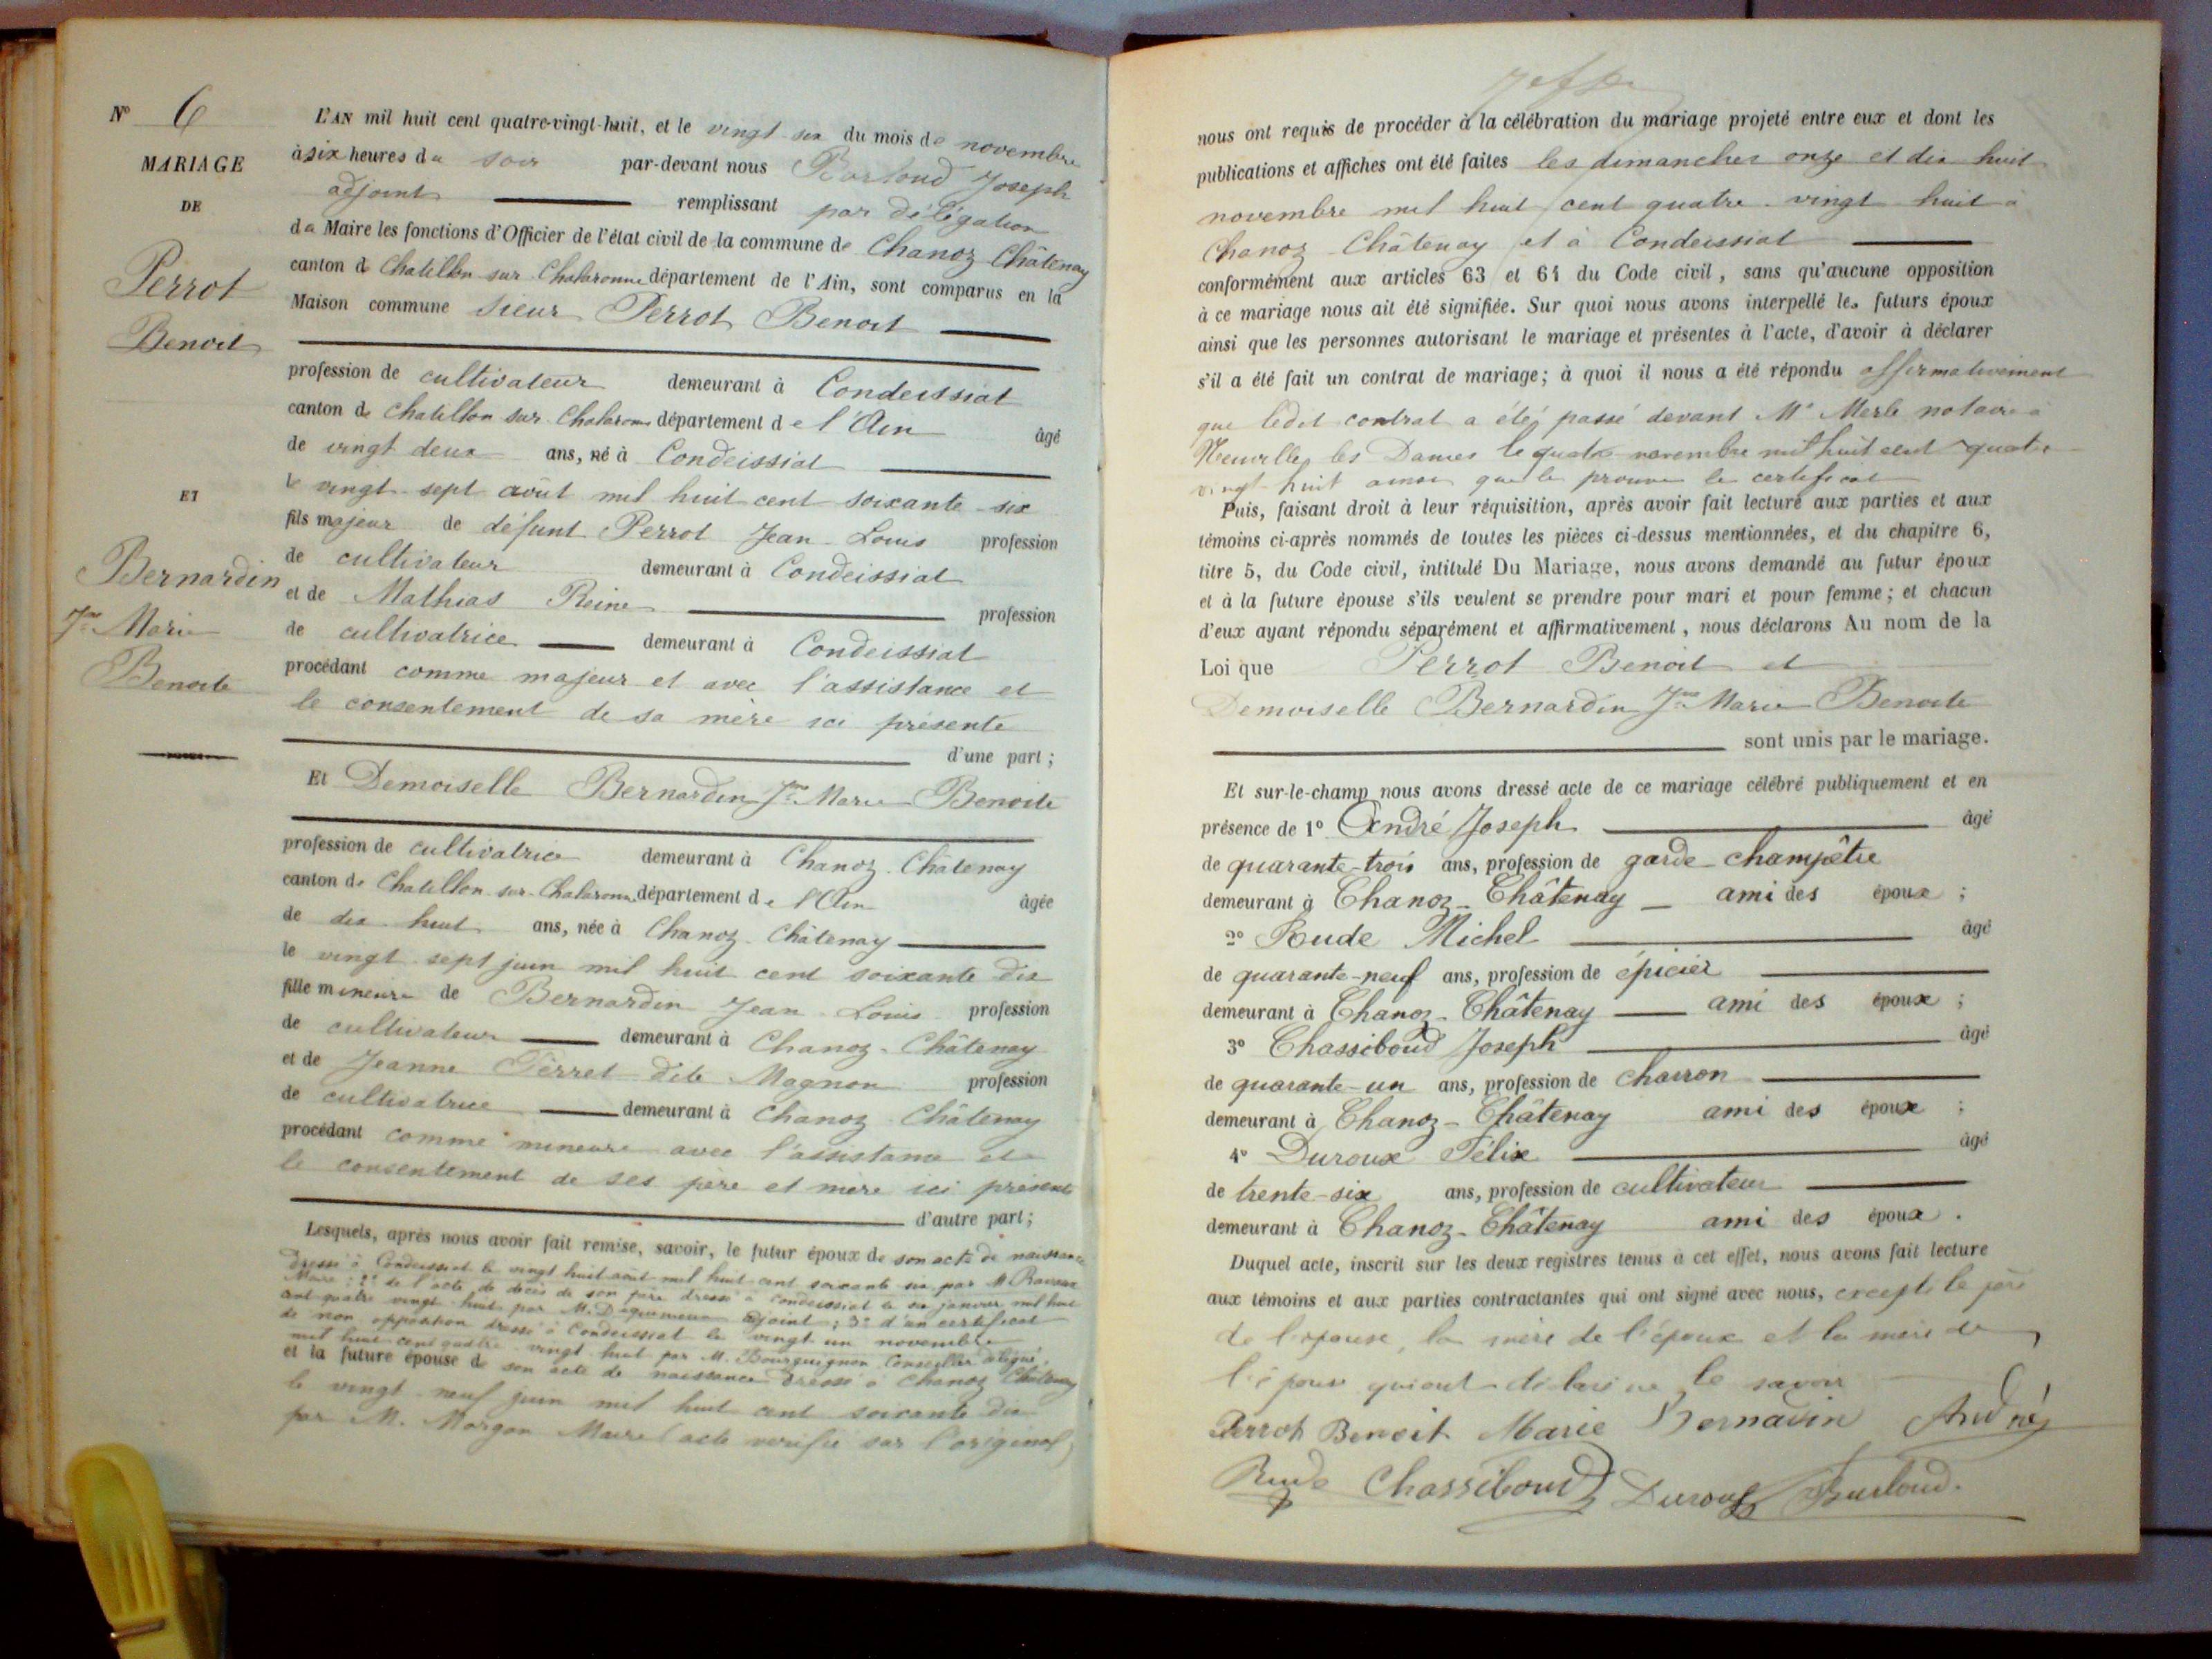 N° 6
MARIAGE
DE
Perrot
Benoit
ET
Bernardin
Jne Marie
Benoite
L'AN mil huit cent quatre-vingt-huit, et le vingt six du mois de novembre
à six heures du soir par-devant nous Burloud Joseph
adjoint remplissant par délégation
du Maire les fonctions d'Officier de l'état civil de la commune de Chanoz Châtenay
canton de Chatillon sur Chalaronne département de l'Ain, sont comparus en la
Maison commune sieur Perrot Benoit
profession de cultivateur demeurant à Condeissiat
canton de Chatillon sur Chalaronne département de l'Ain âgé
de vingt deux ans, né à Condeissiat
le vingt sept août mil huit cent soixante-six
fils majeur de défunt Perrot Jean-Louis profession
de cultivateur demeurant à Condeissiat
et de Mathias Reine profession
de cultivatrice demeurant à Condeissiat
procédant comme majeur et avec l'assistance et
le consentement de sa mère ici présente
d'une part ;
Et Demoiselle Bernardin Jne Marie Benoite
profession de cultivatrice demeurant à Chanoz-Châtenay
canton de Chatillon-sur-Chalaronne département de l'Ain âgée
de dix huit ans, née à Chanoz-Châtenay
le vingt sept juin mil huit cent soixante dix
fille mineure de Bernardin Jean-Louis profession
de cultivateur demeurant à Chanoz-Châtenay
et de Jeanne Ferret dite Magnon profession
de cultivatrice demeurant à Chanoz Châtenay
procédant comme mineure avec l'assistance et
le consentement de ses père et mère ici présents
d'autre part ;
Lesquels, après nous avoir fait remise, savoir, le futur époux de son acte de naissance
dressé à Condeissiat le vingt huit août mil huit cent soixante six par M.
Maire ; 2° de l'acte de décès de son père dressé à Condeissiat le six janvier mil huit
cent quatre vingt huit par M. adjoint ; 3° d'un certificat
de non opposition dressé à Condeissiat le vingt un novembre
mil huit cent quatre vingt huit par M. Bourguignon Conseiller délégué,
et la future épouse de son acte de naissance dressé à Chanoz Châtenay
le vingt-neuf juin mil huit cent soixante dix
par M. Morgon Maire (acte vérifié sur l'original)
nous ont requis de procéder à la célébration du mariage projeté entre eux et dont les
publications et affiches ont été faites les dimanches onze et dix huit
novembre mil huit cent quatre-vingt huit à
Chanoz-Châtenay et à Condeissiat
conformément aux articles 63 et 64 du Code civil, sans qu'aucune opposition
à ce mariage nous ait été signifiée. Sur quoi nous avons interpellé les futurs époux
ainsi que les personnes autorisant le mariage et présentes à l'acte, d'avoir à déclarer
s'il a été fait un contrat de mariage ; à quoi il nous a été répondu affirmativement
que ledit contrat a été passé devant Me Merle notaire à
Neuville les Dames le quatre novembre mil huit cent quatre
vingt huit ainsi que le prouve le certificat
Puis, faisant droit à leur réquisition, après avoir fait lecture aux parties et aux
témoins ci-après nommés de toutes les pièces ci-dessus mentionnées, et du chapitre 6,
titre 5, du Code civil, intitulé Du Mariage, nous avons demandé au futur époux
et à la future épouse s'ils veulent se prendre pour mari et pour femme ; et chacun
d'eux ayant répondu séparément et affirmativement, nous déclarons Au nom de la
Loi que Perrot Benoit et
Demoiselle Bernardin Jne Marie Benoite
sont unis par le mariage.
Et sur-le-champ nous avons dressé acte de ce mariage célébré publiquement et en
présence de 1° André Joseph âgé
de quarante-trois ans, profession de garde-champêtre
demeurant à Chanoz-Châtenay ami des époux ;
2° Rude Michel âgé
de quarante-neuf ans, profession de épicier
demeurant à Chanoz-Châtenay ami des époux ;
3° Chassiboud Joseph âgé
de quarante-un ans, profession de charron
demeurant à Chanoz-Châtenay ami des époux ;
4° Duroux Félix âgé
de trente-six ans, profession de cultivateur
demeurant à Chanoz-Châtenay ami des époux.
Duquel acte, inscrit sur les deux registres tenus à cet effet, nous avons fait lecture
aux témoins et aux parties contractantes qui ont signé avec nous, excepté le père
de l'épouse, la mère de l'époux et la mère de
l'épouse qui ont déclaré ne le savoir
Perrot Benoit Marie Bernadin André
Rude Chassiboud Duroux Burloud.